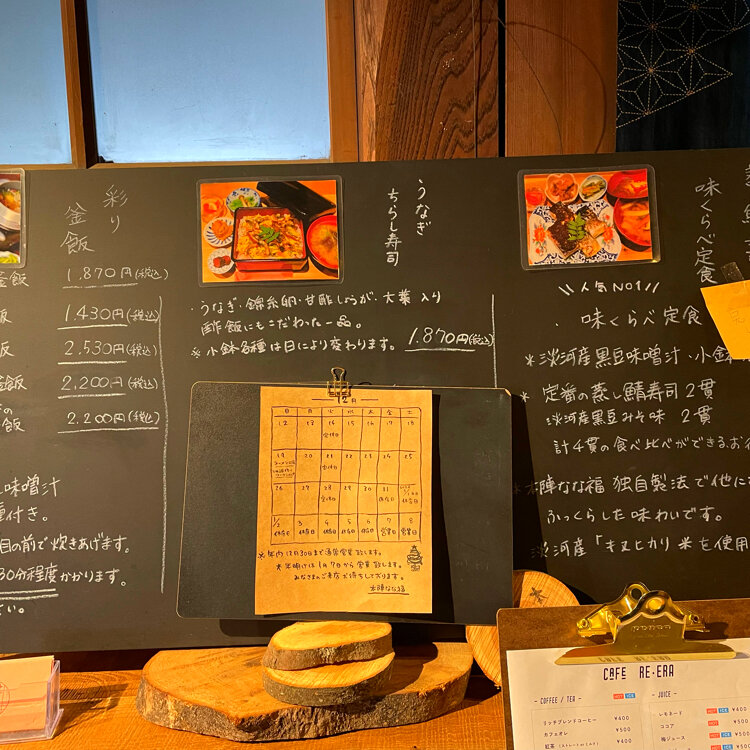 彩り
釜飯
釜飯
1.870円(税込)
飯
1.430円(税込)
飯
2.530円(税込)
釜飯
2.200円(税込)
の
飯
2.200円(税込)
味噌汁
付き。
目の前で炊きあげます。
30分程度かかります。
さい。
うなぎ
ちらし寿司
・うなぎ・錦糸卵・甘酢しょうが・大葉 入り
酢飯にもこだわった一品。
※小鉢各種は日により変わります。
1.870円(税込)
味くらべ定食
\\人気NO1//
味くらべ定食
*淡河産黒豆味噌汁・小鉢
* 定番の蒸し鯖寿司2貫
淡河産黒豆みそ味 2貫
計4貫の食べ比べができる、お
*本陣なな福 独自製法で他に
ふっくらした味わいです。
*淡河産「キヌヒカリ米を使用
12月
日 月 火 水 木 金 土
12 13 14 15 16 17 18
定休日
19 20 21 22 23 24 25
定休日
26 27 28 29 30 31
定休日
1/2 3 4 5 6 7 8
休店日 休店日 休店日 休店日 休店日 営業日 営業日
*年内12月30日まで通常営業致します。
*年明けは1月7日から営業致します。
みなさまのご来店お待ちしております。
本陣なな福
CAFE RE·ERA
COFFEE / TEA
HOT ICE
リッチブレンドコーヒー ¥400
カフェオレ ¥500
紅茶
¥400
JUICE
HOT ICE
レモネード ¥400
ココア ¥500
梅ジュース ¥400